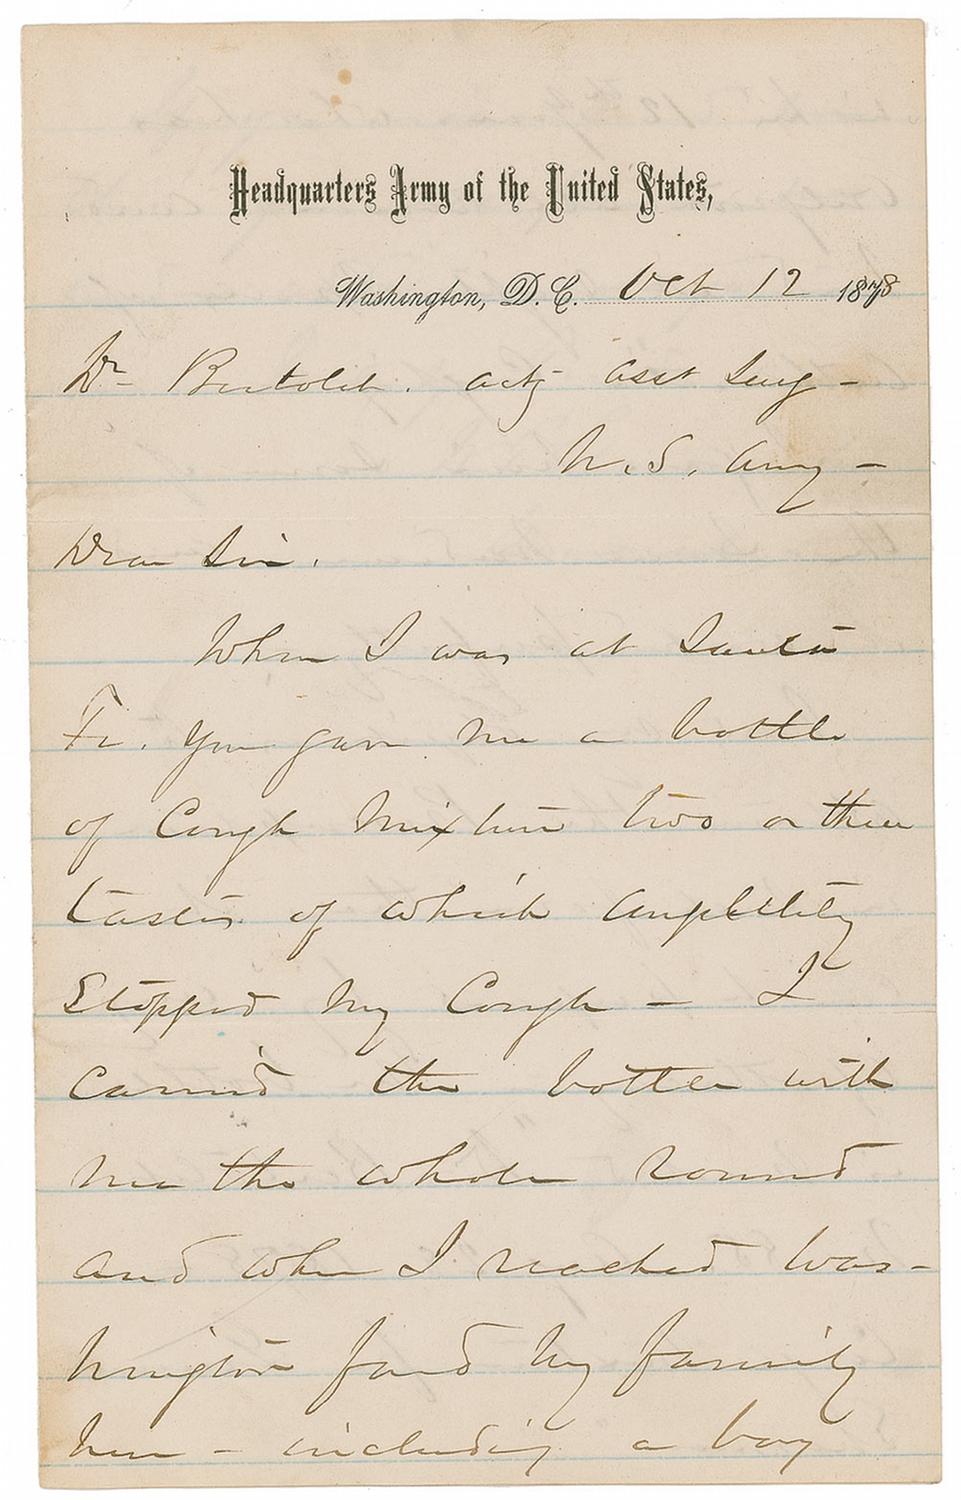 Headquarters Army of the United States,
Washington, D.C. Oct 12 1878
Dr Bertolet. actg asst Surg -
U. S. Army -
Dear Sir.
When I was at Santa
Fe. you gave me a bottle
of Cough Mixture two or three
tastes of which
Stopped my Cough - I
carried the bottle with
me the whole round
and when I reached Was-
hington found my family
here - including a boy